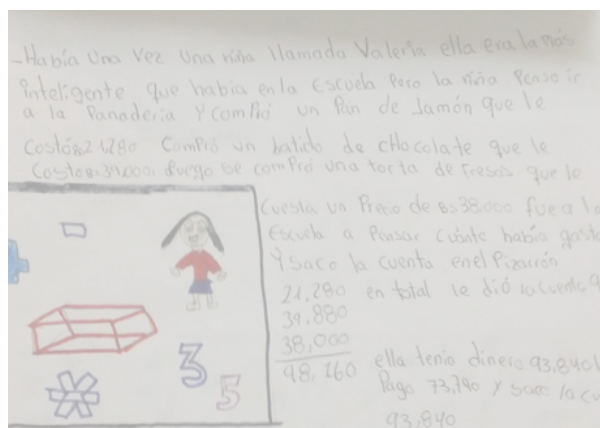 -Había Una Vez Una niña llamada Valeria ella era la más
inteligente que habia en la Escuela Pero la niña Penso ir
a la Panaderia Y comPró un Pan de Jamón que le
Costó 21.280 ComPró un batido de cHocolate que le
Costo luego se comPró una torta de fresas que le
Cuesta un Precio de Bs 38.000 fue a la
Escuela a Pensar cuánto había
Y saco la cuenta en el Pizarrón
21.280 en total le dió la cuenta
38,000
98,160 ella tenia dinero 93,840
Pago y saco la
93,840
3
5